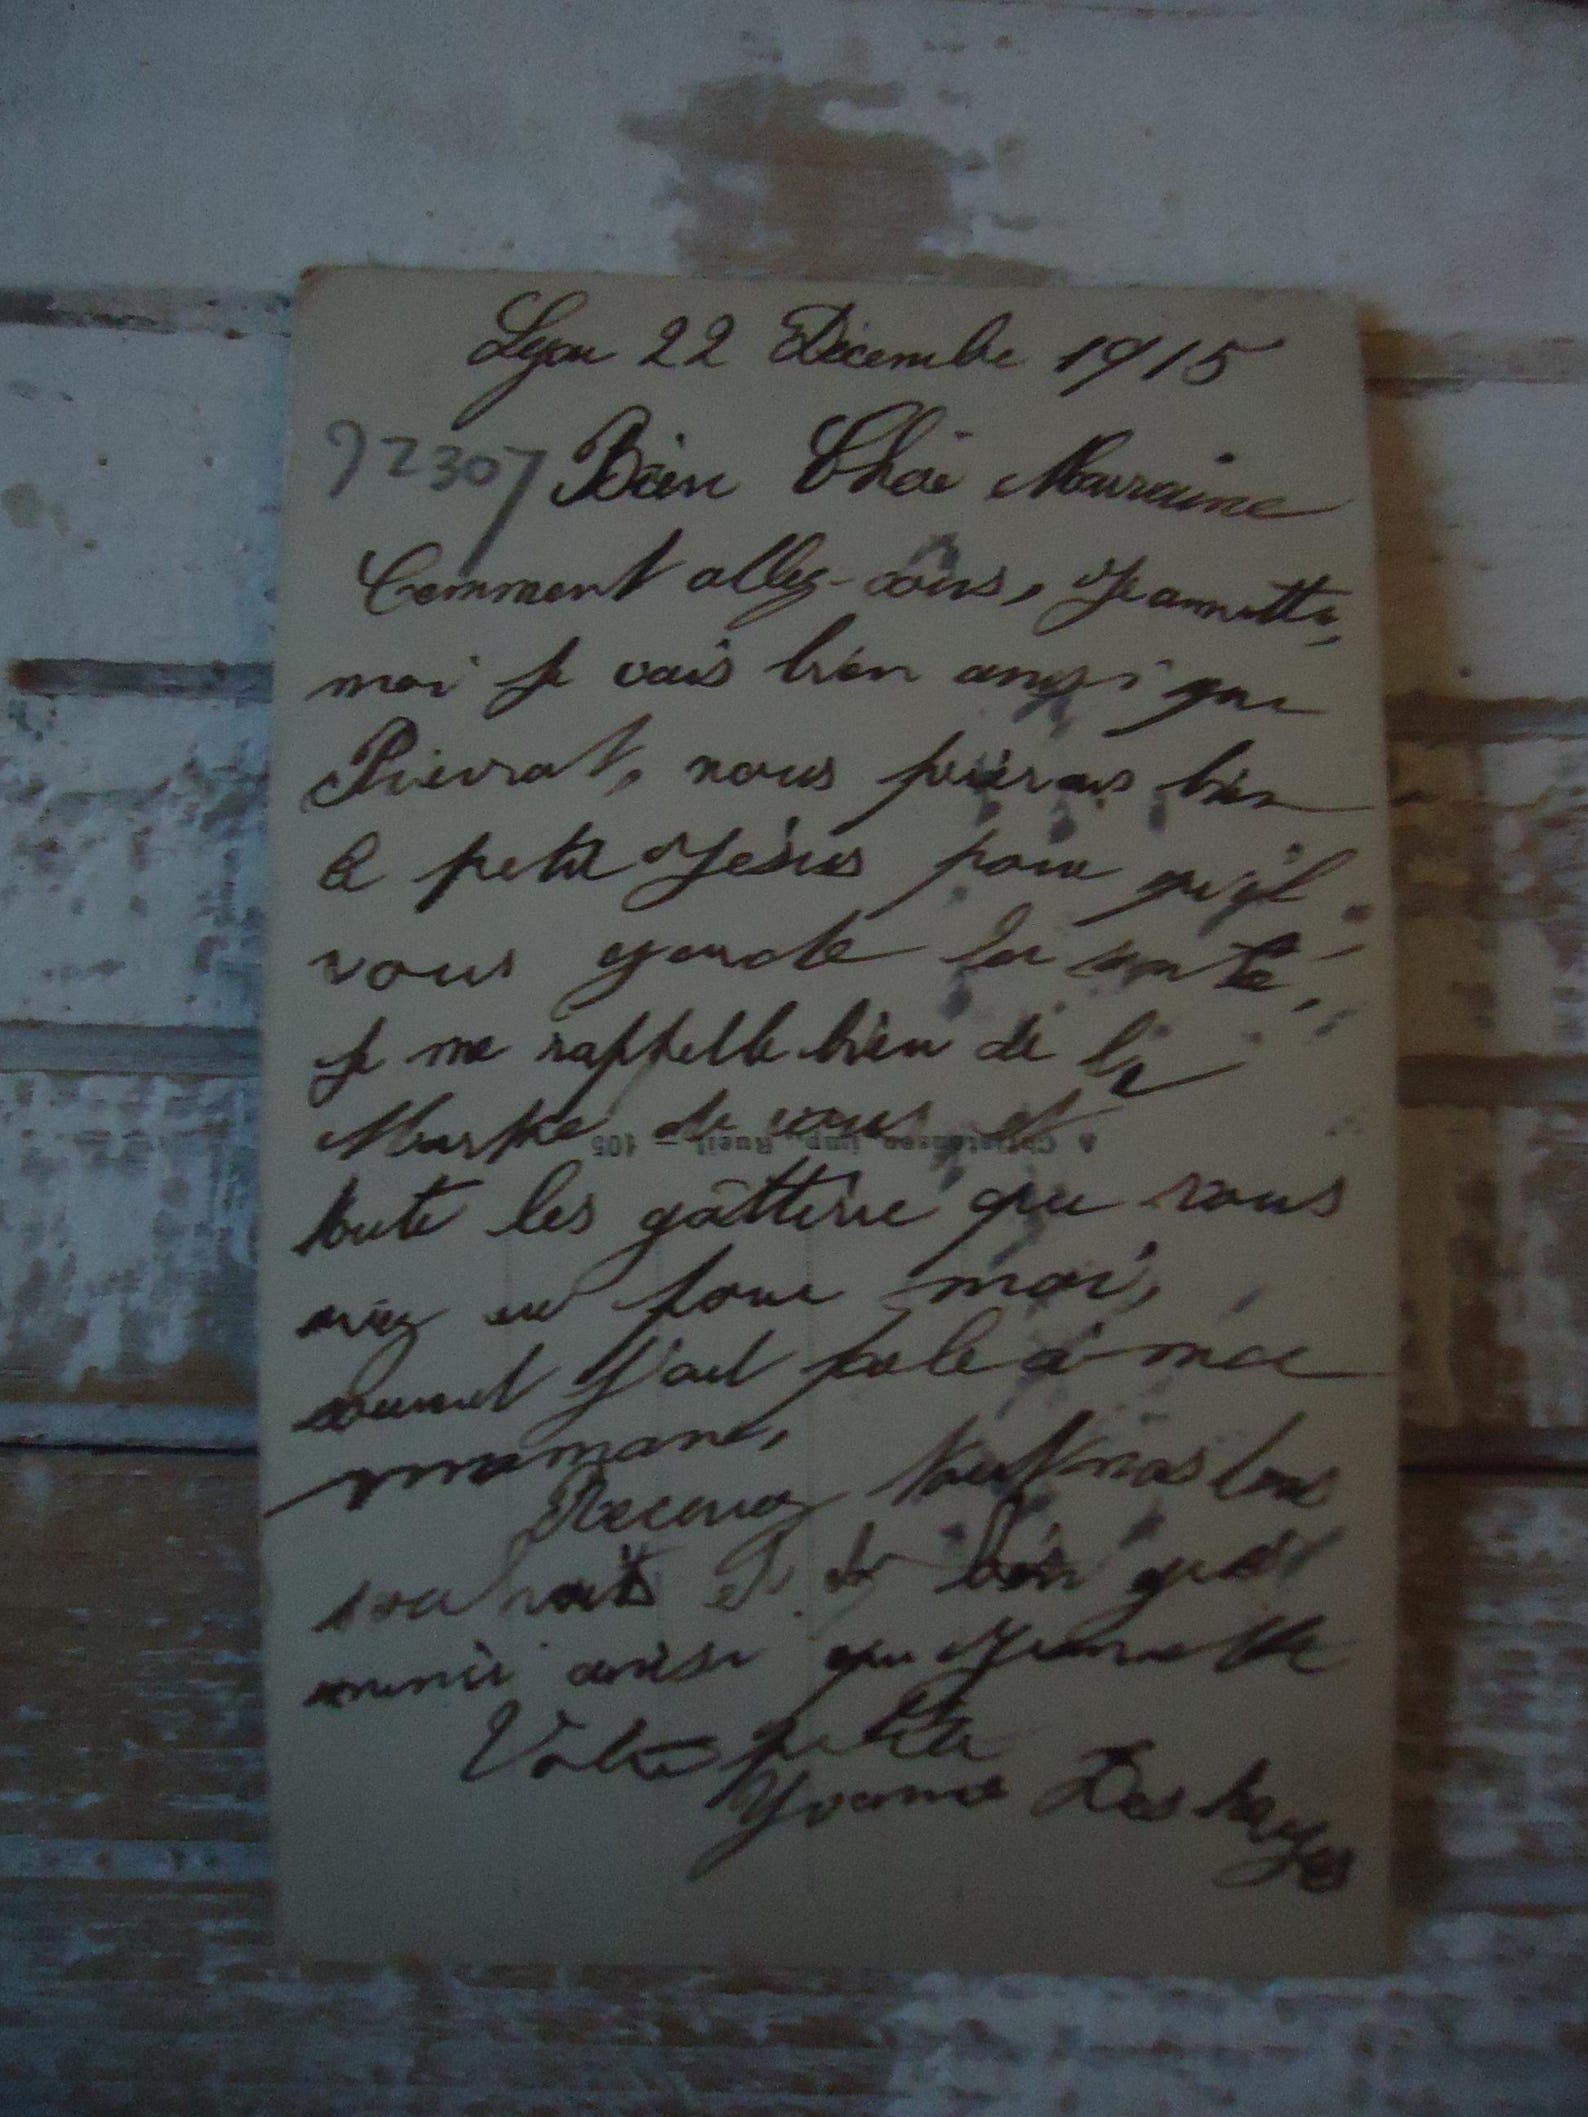 Lyon 22 Décembre 1915
92307 Bien Chèe Marraine
Comment allez-vous, Jeannette,
moi je vais bien ansi que
Pierrot, nous prierons bien
le petit Jésus pour qu'il
vous garde la santé,
je me rappelle bien de la
de vous et
toute les gâtterie que vous
aviez eu pour moi,
souvent j'ait parle à ma
maman,
Recevez tout nos bons
souhaits et
ainsi que Jeannette
Votre petite
Yvonne Deshayes